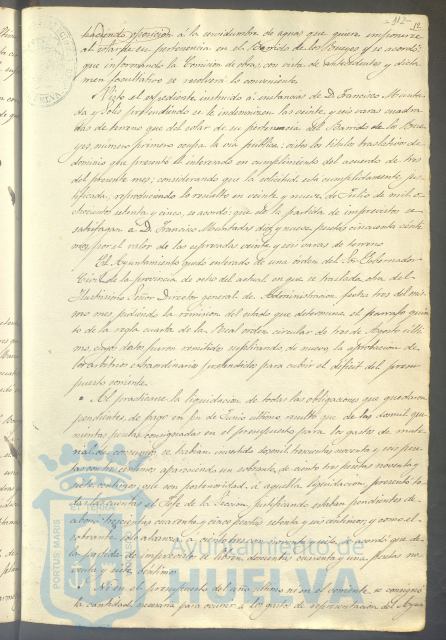 -112-
haciendo oposición á la servidumbre de aguas que quiere imponerse
al solar de su pertenencia en el Barrido de los Bueyes y se acordó
que informando la Comision de obras, con vista de antecedentes y dicta
men facultativo se resolverá lo conveniente.
Visto el expediente instruido á instancias de D. Francisco Muun
da y Solis pretendiendo se le indemnicen las veinte y seis varas cuadra
das de terreno que del solar de su pertenencia del Barrido de los Bue
yes, número primero ocupa la via publica; vistos los titulos traslativos de
dominio que presenta el interesado en cumplimiento del acuerdo de tres
del presente mes; considerando que la solicitud está cumplidamente jus
tificada, reproduciendo lo resuelto en veinte y nueve de Julio de mil o
chocientos setenta y cinco, se acordó que de la partida de imprevistos se
satisfagan á D. Francisco diez y nueve pesetas cincuenta cénti
mos por el valor de las espresadas veinte y seis varas de terreno.
El Ayuntamiento quedó enterado de una orden del Sr. Gobernador
Civil de la provincia de ocho del actual en que se traslada otra del
Ilustrisimo Señor Director general de Administracion fecha tres del mis
mo mes pidiendo la remision del estado que determina el parrafo quin
to de la regla cuarta de la Real orden circular de tres de Agosto ulti
mo, cuyos datos fueron remitidos suplicando, de nuevo, la aprobacion de
los arbitrios extraordinarios propuestos para cubrir el deficit del presu
puesto corriente.
Al practicarse la liquidacion de todas las obligaciones que quedaron
pendientes de pago en fin de Junio ultimo resultó que de las dos mil qui
nientas pesetas consignadas en el presupuesto para los gastos de mate
rial de se habian invertido dos mil trescientas noventa y seis pese
tas con tres céntimos apareciendo un sobrante de ciento tres pesetas noventa y
siete centimos, y como con posterioridad á aquella liquidacion presentó to
das las cuentas el Jefe de la Seccion, justificando estaban pendientes de
abono trescientas cuarenta y cinco pesetas setenta y seis centimos, y como el
sobrante solo alcanza á se acordó que de
la partida de imprevistos se libren doscientas cuarenta y una pesetas se
tenta y siete centimos.
Ni en el presupuesto del año ultimo ni en el corriente se consignó
la cantidad necesaria para ocurrir á los gastos de representacion del Ayun
PORTUS MARIS
Ayuntamiento de
HUELVA